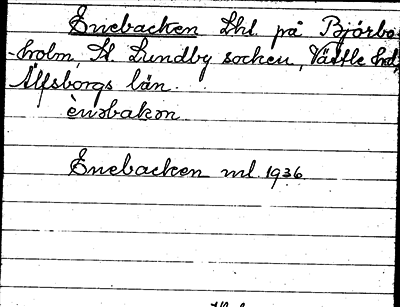 Enebacken Lht. på Björbo-
-holm, St. Lundby socken, Vättle hd,
Älfsborgs län.
ènəbakən
Enebacken ml. 1936.